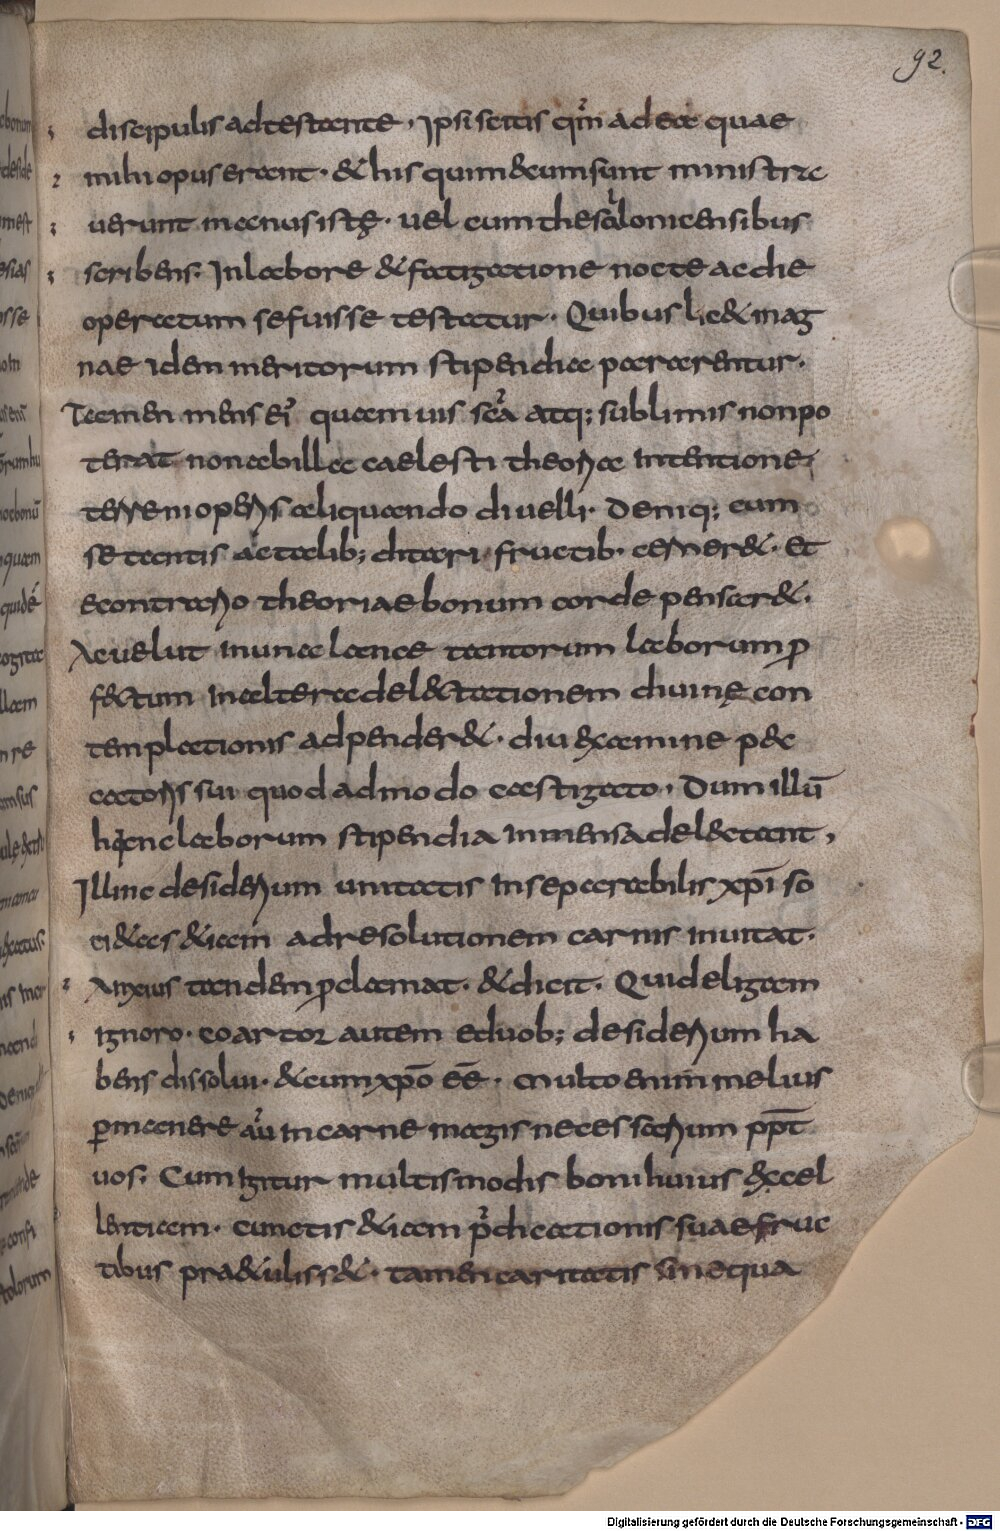 92.
discipulis adtestante. Ipsi scitis qm̄ ad ea quae
mihi opus erant. & his qui mecum sunt ministra
uerunt manus istę. uel cum thessalonicensibus
scribens. In labore & fatigatione nocte ac die
operatum se fuisse testatur. Quibus lic& mag
nae idem meritorum stipendia pararentur.
Tamen mens ei' quam uis sc̄a atq; sublimis non po
terat non ab illa caelesti theoria intentione
terreni operis aliquando diuelli. Deniq; cum
se tantis ac talib; ditari fructib. cerner&. et
e contrario theoriae bonum corde pensar&.
Ac uelut in una lance tantorum laborum p
fectum in altera delectationem diuinę con
templationis adpender&. diu examine pec
catoris sui quodadmodo castigato. Dum illū
hinc laborum stipendia inmensa delectant,
Illinc desiderium unitatis inseparabilis xp̄i so
ci&as &iam ad resolutionem carnis inuitat.
Anxius tandem p̱clamat. & dicit. Quid eligam
ignoro. coartor autem e duob; desiderium ha
bens dissolui. & cum xp̄o eē. multo enim melius
ꝑmanere au' in carne magis necessarium ppt̄
uos. Cum igitur multis modis boni huius excel
lentiam. cunctis &iam p̄dicationis suae fruc
tibus pra&ulisset. tamen caritatis sine qua